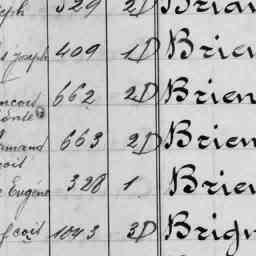 eph 329 2D Brian
Joseph 409 1D Brien
ncois 662 2D Brien
rmand 663 2D Brien
Eugène 328 1 Brien
çois 1043 3D Brign